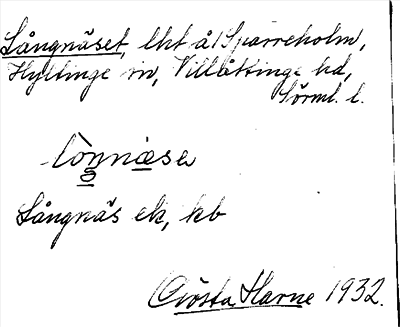 Långnäset, lht å Sparreholm,
Hyltinge sn, Villåttinge hd,
Sörml. l.
lònnäse
Långnäs ek, kb
Gösta Harne 1932.